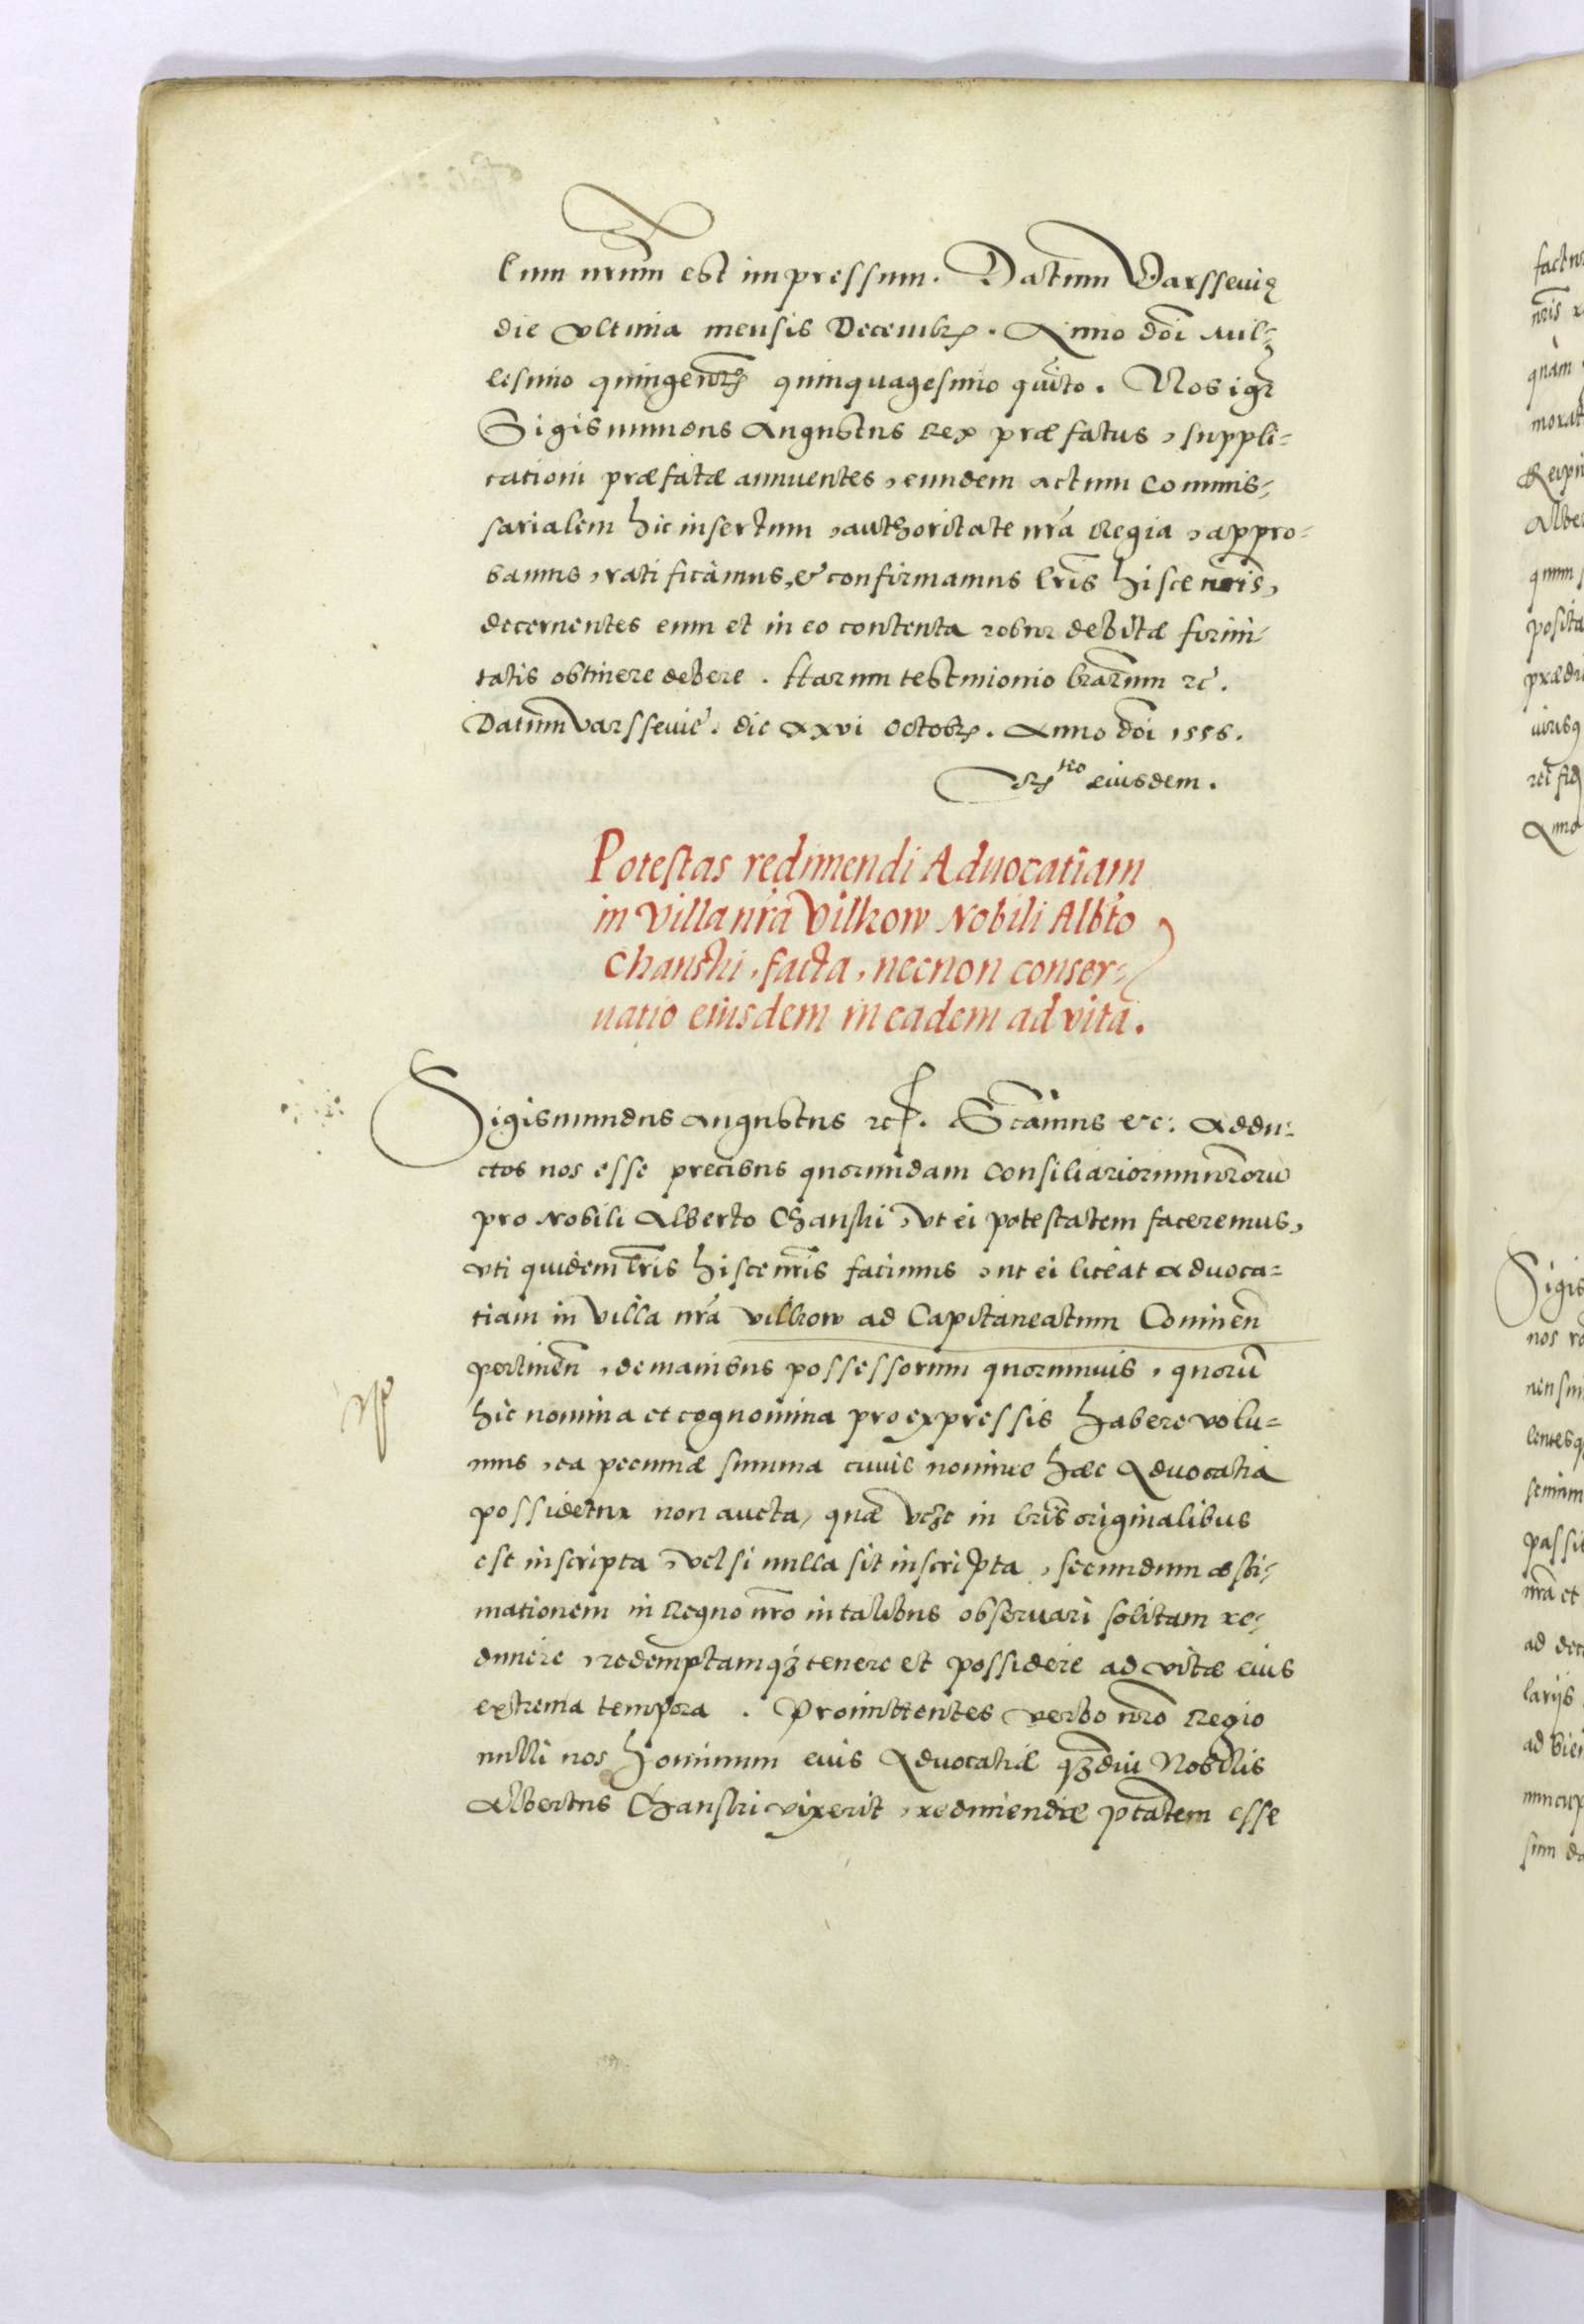 lum nrum est impressum. Datum Varsseuię
die vltima mensis Decembr. Anno doi Mil-
lesimo quingentes quinquagesimo quito. Nos igr
Sigismundus Augustus Rex præfatus, suppli-
cationi præfatæ annuentes, eundem actum commis-
sarialem hic insertum, authoritate nrã Regia, appro-
bamus, ratificamus, & confirmamus lris hisce nris,
decernentes eum et in eo contenta robur debitæ firmi-
tatis obtinere debere. Harum testimonio lrarum rc.
Datum Varsseuie. die xxvi Octobr. Anno doi 1556.
eiusdem.
Potestas redimendi Aduocatiam
in villa nrã Vilkow Nobili Albto
Chanski, facta, necnon conser-
uatio eiusdem in eadem ad vitã.
Sigismundus Augustus rc. Scamus &c: Addu-
ctos nos esse precibus quorundam Consiliariorum nrorũ
pro Nobili Alberto Chanski, vt ei potestatem faceremus,
vti quidem lris hisce nris facimus, ut ei liceat Aduoca-
tiam in villa nrã vilkow ad Capitaneatum Cominen
pertinen, de manibus possessorum quorumuis, quorũ
hic nomina et cognomina pro expressis habere volu-
mus, ea pecuniæ summa cuius nomine hæc Aduocatia
possidetur non aucta, quæ vcz in lris originalibus
est inscripta, vel si nulla sit inscripta, secundum æsti-
mationem in Regno nro in talibus obseruari solitam re-
dimere, redemptamqz tenere et possidere ad vitæ eius
extrema tempora. Promittentes verbo nro Regio
nulli nos hominum eius Aduocatiæ qzdiu Nobilis
Albertus Chanski vixerit, redimendæ ptatem esse